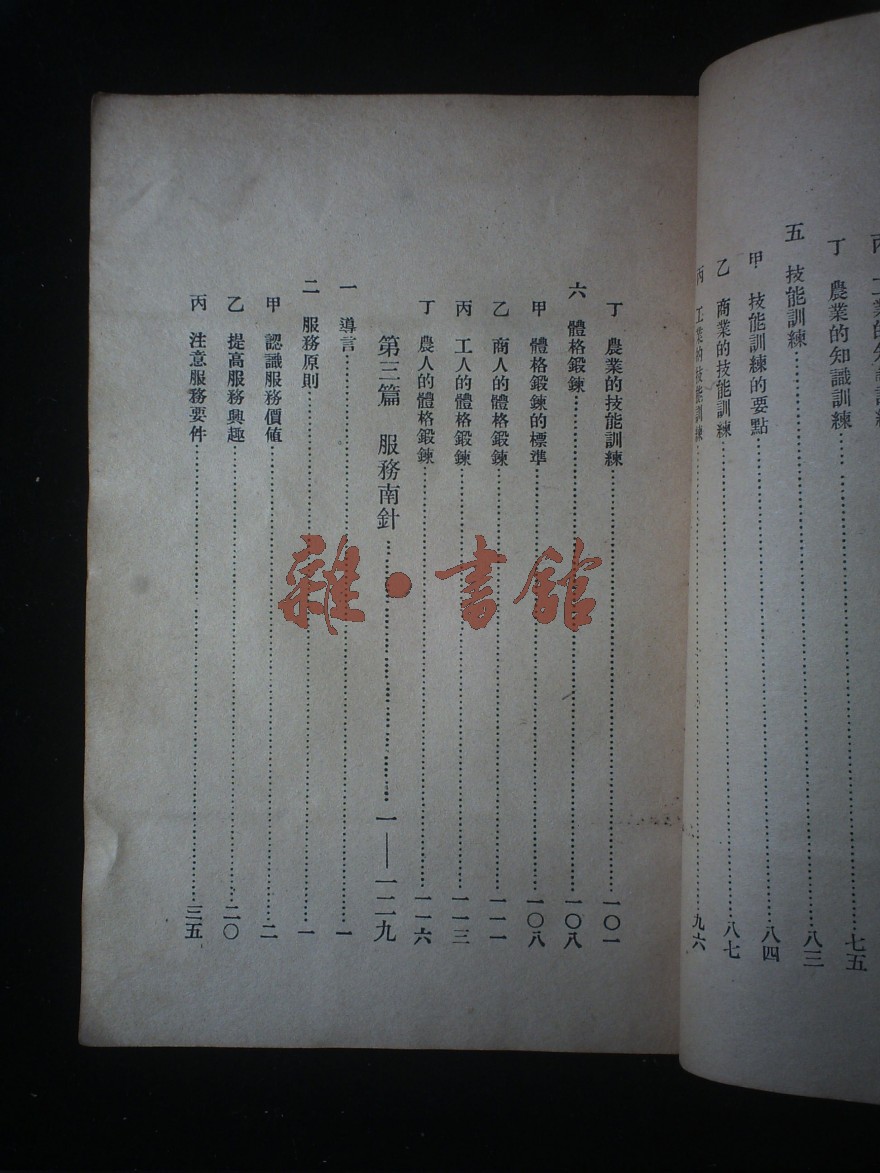 農業的知識訓練……七五
五 技能訓練……八三
甲 技能訓練的要點……八四
乙 商業的技能訓練……八七
丙 工業的技能訓練……九六
丁 農業的技能訓練……一〇一
六 體格鍛鍊……一〇八
甲 體格鍛鍊的標準……一〇八
乙 商人的體格鍛鍊……一一一
丙 工人的體格鍛鍊……一一三
丁 農人的體格鍛鍊……一一六
第三篇 服務南針……一——一二九
一 導言……一
二 服務原則……一
甲 認識服務價值……二
乙 提高服務興趣……二〇
丙 注意服務要件……三五
雜·書館